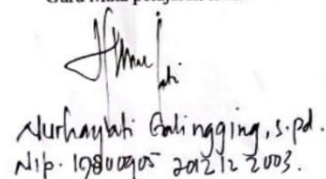 Guru Mata pelajaran
Nurhayati Galingging, S.Pd.
Nip. 19800905 201212 2003.